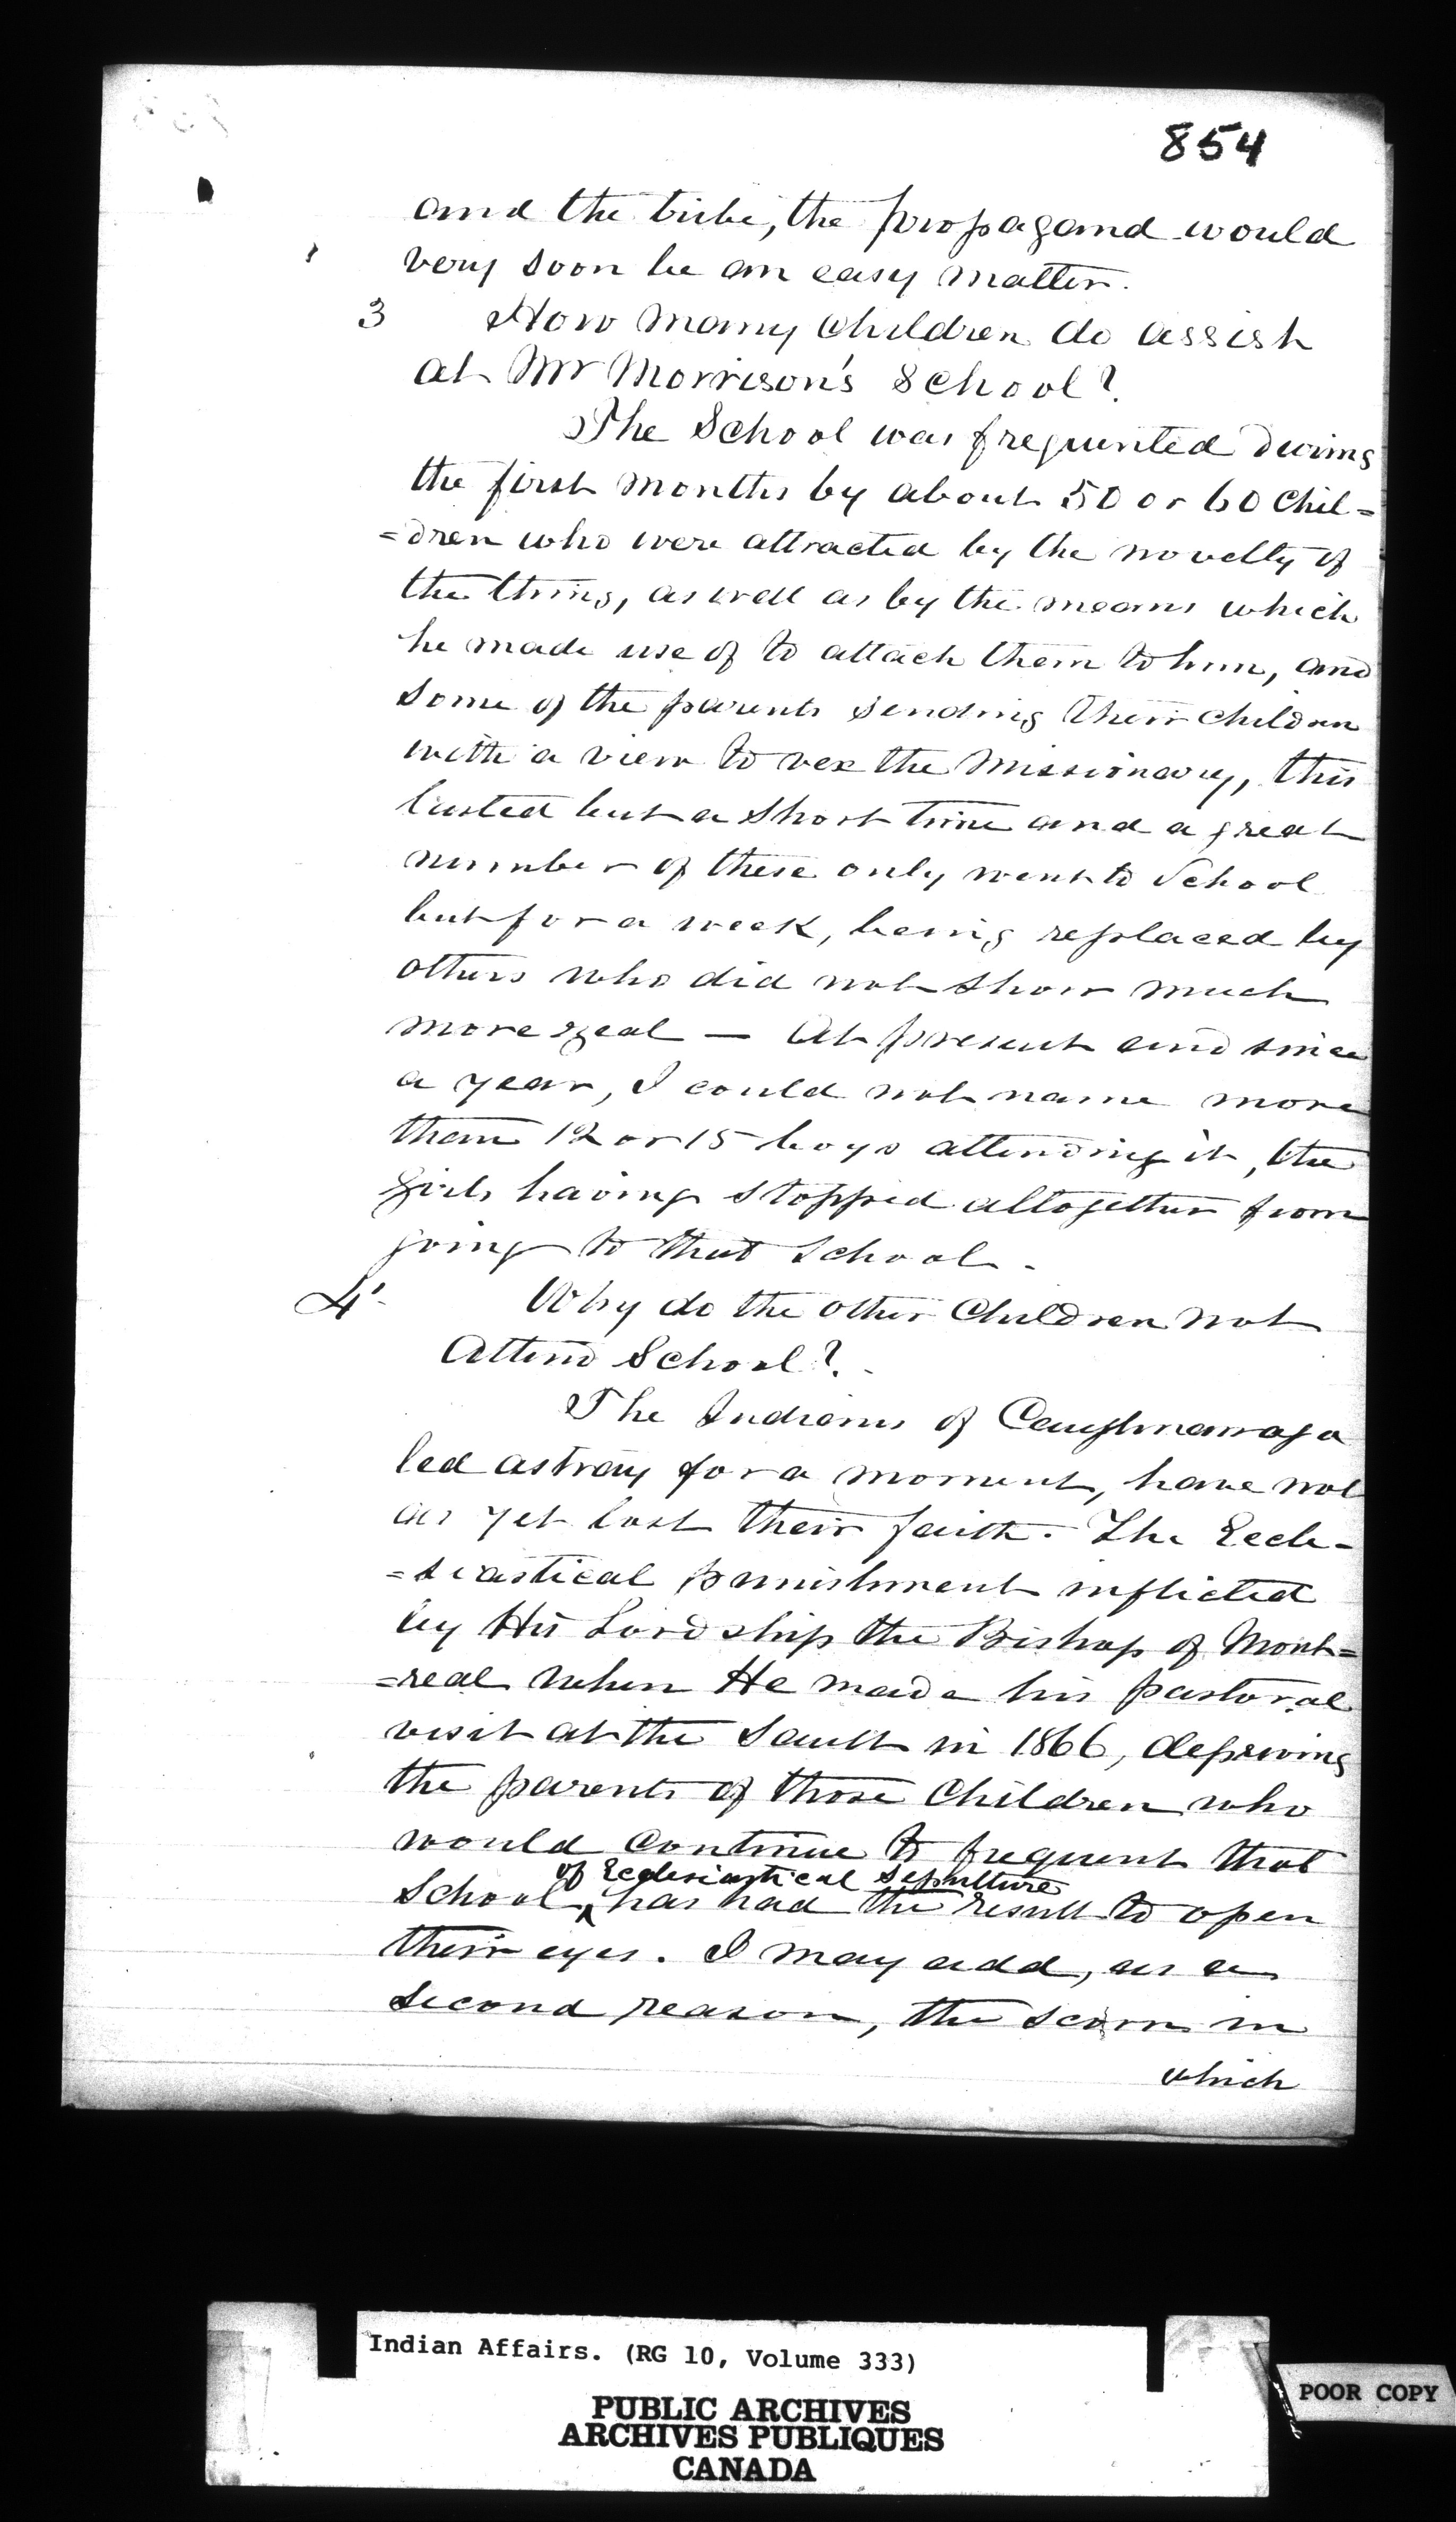 854
and the tribe, the propagand would
very soon be an easy matter.
3 How many Children do assist
at Mr Morrison's School?
The School was frequented during
the first months by about 50 or 60 Chil=
=dren who were attracted by the novelty of
the thing, as well as by the means which
he made use of to attach them to him, and
some of the parents sending their children
with a view to vex the Missionary, this
lasted but a short time and a great
number of these only went to School
but for a week, being replaced by
others who did not show much
more zeal — At present and since
a year, I could not name more
than 12 or 15 boys attending it, the
girls having stopped altogether from
going to that School.
4 Why do the other Children not
Attend School?
The Indians of Caughnawaga
led astray for a moment, have not
as yet lost their faith. The Eccle-
=siastical punishment inflicted
by His Lordship the Bishop of Mont=
=real when He made his pastoral
visit at the Sault in 1866, depriving
the parents of those Children who
would continue to frequent that
of Ecclesiastical Sepulture
School, has had the result to open
their eyes. I may add, as a
second reason, the scorn in
which
Indian Affairs. (RG 10, Volume 333)
PUBLIC ARCHIVES
ARCHIVES PUBLIQUES
CANADA
POOR COPY